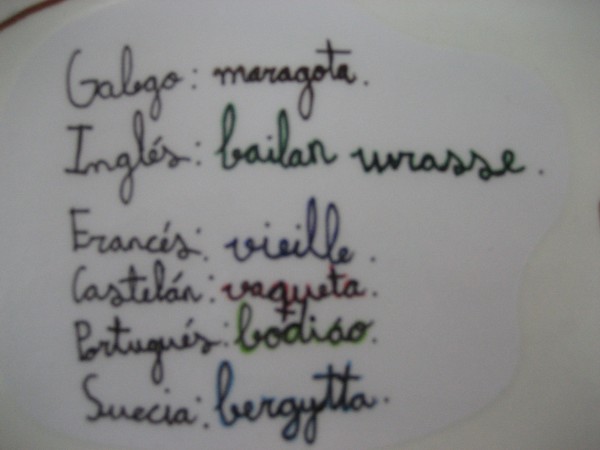 Galego: maragota.
Inglés: bailan wrasse.
Francés: vieille.
Castelán: vaqueta.
Portugués: bodiáo.
Suecia: bergytta.